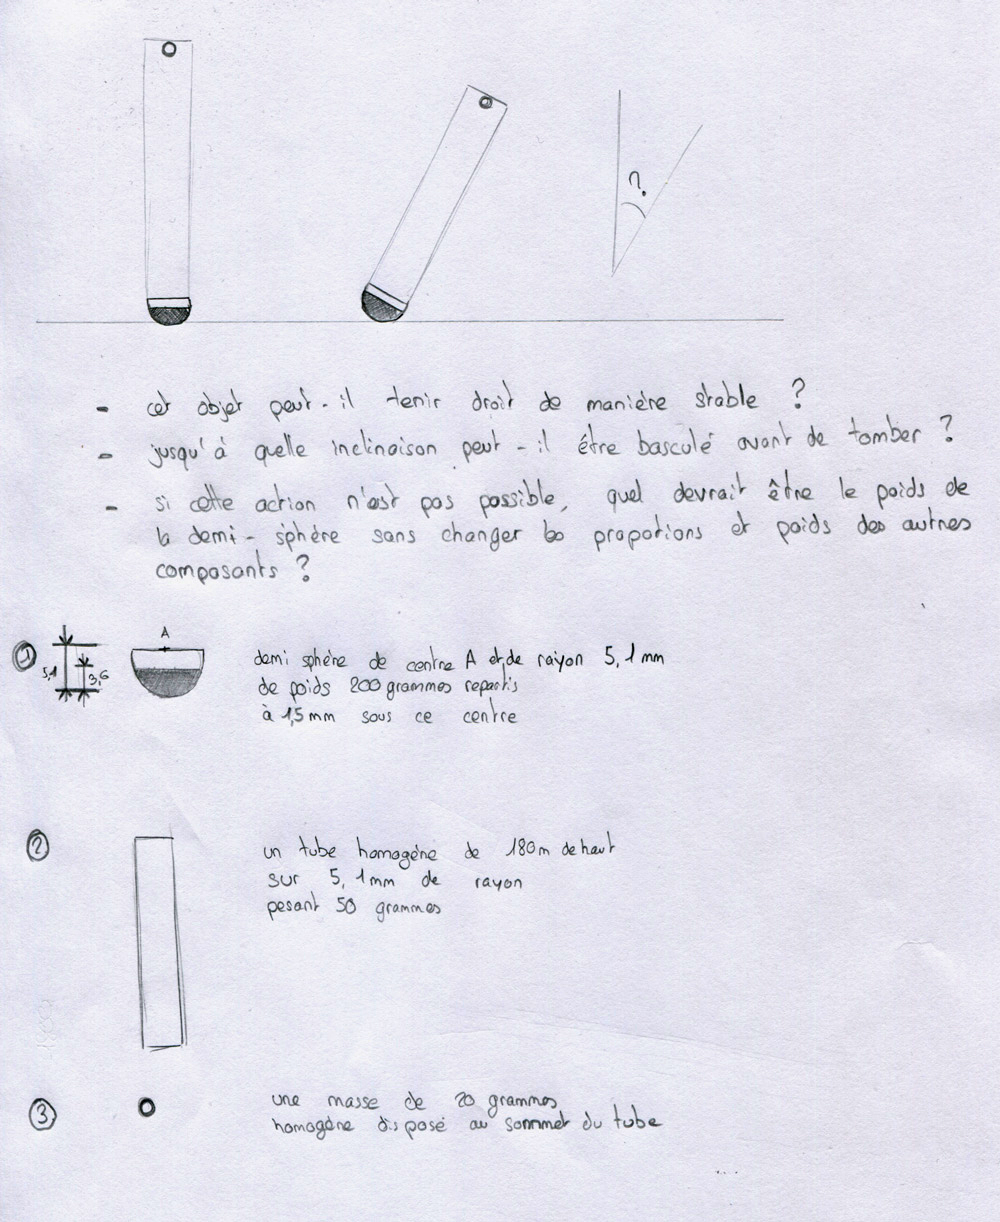 ?
- cet objet peut-il tenir droit de manière stable ?
- jusqu'à quelle inclinaison peut-il être basculé avant de tomber ?
- si cette action n'est pas possible, quel devrait être le poids de
la demi-sphère sans changer les propotions et poids des autres
composants ?
① 5,1 3,6 A demi sphère de centre A et de raiyon 5,1mm
de poids 200 grammes repartis
à 1,5mm sous ce centre
② un tube homogène de 180m de haut
sur 5,1mm de rayon
pesant 50 grammes
③ une masse de 20 grammes
homogène disposé au sommet du tube